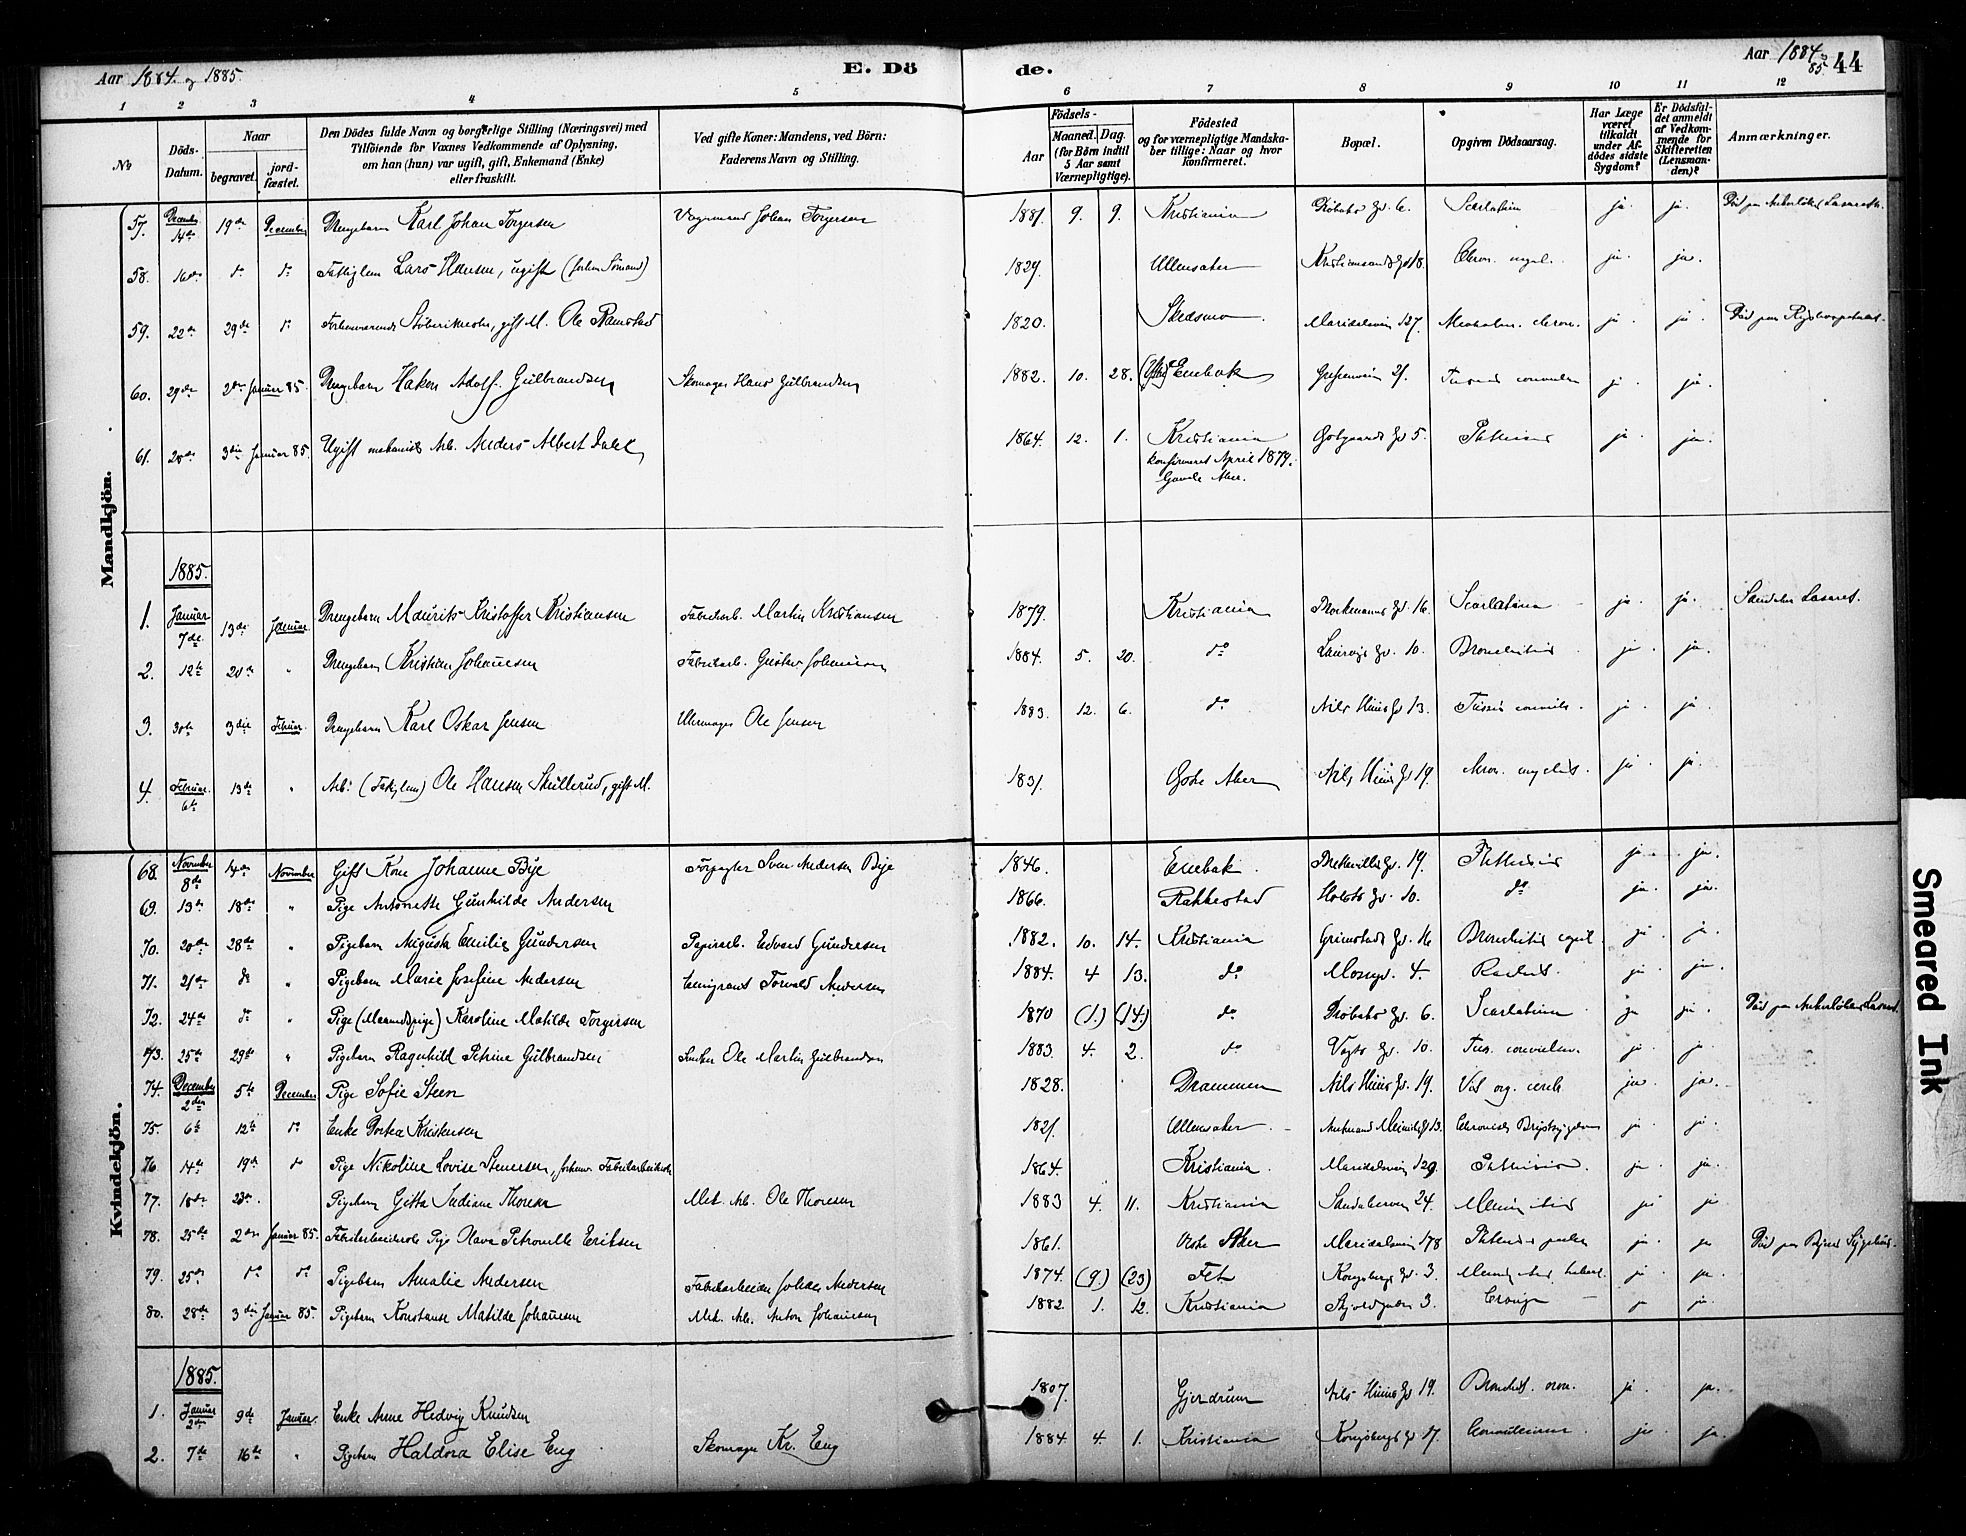 Aar 1884. og 1885.
E. Døde.
Aar 1884 85. 44
1 2 3 4 5 6 7 8 9 10 11 12
No
Döds-Datum.
Naar
begravet.
jord-fæstet.
Den Dödes fulde Navn og borgerlige Stilling (Næringsvei) med
Tilföiende for Voxnes Vedkommende af Oplysning,
om han (hun) var ugift, gift, Enkemand (Enke)
eller fraskilt.
Ved gifte Koner: Mandens, ved Börn:
Faderens Navn og Stilling.
Födsels-
Aar
Maaned. Dag.
(for Börn indtil
5 Aar samt
Værnepligtige).
Födested
og for værnepligtige Mandska-
ber tillige: Naar og hvor
konfirmeret.
Bopæl.
Opgiven Dödsaarsag.
Har Læge
været
tilkaldt
under Af-
dödes sidste
Sygdom?
Er Dödsfal-
det anmeldt
af Vedkom-
mende for
Skifteretten
(Lensman-
den)?
Anmærkninger.
Mandkjön.
57. December 14de 19de December Drengebarn Karl Johan Torgersen Vognmand Johan Torgersen 1881. 9. 9. Kristiania Drøbaks Gd. 6. Scarlatina ja ja. Död paa Ankerlökkens Lasareth.
58. 16de do do Fattiglem Lars Hansen, ugift (forhen Sömand) 1829. Ullensaker Kristiansands Gd 18. Chron. myel. ja. ja.
59. 22de 29de do Forhenværende Støberiarbeider, gift M. Ole Ramstad 1820. Skedsmo Maridalsveien 127. Alcoholism. chron. ja. ja. Död paa Rigshospitalet.
60. 29de 2den Januar 85. Drengebarn Hakon Adolf Gulbrandsen Skomager Hans Gulbrandsen 1882. 10. 28. Enebak Grefsenveien 21. Tussis convulsiva ja ja.
61. 28de 3die Januar 85. Ugift mekanisk Arb. Anders Albert Dahl 1864. 12. 1. Kristiania Gotgaards Gd 5. Phthisis ja ja.
konfirmeret April 1879.
Gamle Aker.
1885.
1. Januar 7de 13de Januar Drengebarn Maurits Kristoffer Kristiansen Fabrikarb. Martin Kristiansen 1879. Kristiania Brochmanns Gd. 16. Scarlatina ja. ja. Sandakers Lasaret.
2. 12te 20de " Drengebarn Kristian Johansen Fabrikarb. Gustav Johansen 1884. 5. 20. do Laurvigs Gd. 10. Bronchitis ja. ja.
3. 30te 3die Februar. Drengebarn Karl Oskar Jensen Uhrmager Ole Jensen 1883. 12. 6. do Nils Huus Gd 13. Tussis convuls. ja ja.
4. Februar. 6te 13de " Arb. (Fattiglem) Ole Hansen Skullerud, gift M. 1831. Østre Aker Nils Huus Gd 19. Chron. myelit. ja. ja.
Kvindekjön.
68. November 8de 14de November Gift Kone Johanne Bye Forpagter Sven Andersen Bye 1846. Enebak. Bredtvedts Gd. 19. Phthisis ja ja.
69. 13de 18de " Pige Antonette Gunhilde Andersen 1866. Rakkestad Holsts Gd. 10. do ja. ja.
70. 20de 28de " Pigebarn Augusta Emilie Gundersen Papirarb. Edvard Gundersen 1882. 10. 14. Kristiania Grimstads Gd. 16 Bronchitis capil. ja. ja.
71. 21de do " Pigebarn Marie Josefine Andersen Emigrant Torvald Andersen 1884. 4 13. do Mossegd. 4. Rachit. ja. ja.
72. 24de do " Pige Karoline Matilde Torgersen 1870 (1.) (14.) do Drøbaks Gd. 6. Scarlatina ja ja. Död paa Ankerlökkens Lasaret.
73. 25de 29de " Pigebarn Ragnhild Petrine Gulbrandsen Snedker Ole Martin Gulbrandsen 1883. 4. 2. do Vogts Gd. 10. Tus. convulsiv. ja. ja.
74. December 2den 5te December Pige Sofie Steen 1828. Drammen Nils Huus Gd. 19. Vit. org. cordis ja. ja.
75. 6te 12te do Enke Dortea Kristensen 1821. Ullensaker Chronisk Brystsygdom ja. ja.
76 14de 19de do Pige Nikoline Lovise Stenersen, forhenv. Fabrikarbeiderske 1864. Kristiania. Maridalsveien 129. Phthisis. ja. ja.
77. 18de 23de Pigebarn Gitta Indiana Thoresen Mek. Arb. Ole Thoresen 1883 4. 11. Kristiania Sandakerveien 24. Meningitis ja ja
78. 25de 2den Januar 85. Fabrikarbeiderske Pige Olava Petronelle Eriksen 1861. Vestre Aker Maridalsveien 178 Phthisis pulm ja. ja Död paa Byens Sygehus.
79. 25de do do Pigebarn Amalie Andersen Fabrikarbeider Johan Andersen 1874. (9.) (23) Fet Kongsbergs Gd. 3. Meningitis tuberc. ja. ja.
80. 28de 3die Januar 85. Pigebarn Konstanse Matilde Johansen Mek. Arb. Anton Johansen 1882. 1. 12. Kristiania Skjoldgaden 3. Croup ja ja.
1885.
1. Januar 2den 9de Januar. Enke Anne Hedvig Knudsen 1807. Gjerdrum Nils Huus Gd 19. Bronchit. cron. ja. ja.
2. 7de 16de " Pigebarn Haldora Elise Eng Skomager Kr. Eng 1884 4. 1. Kristiania Kongsbergs Gd 17. ja. ja.
Smeared Ink